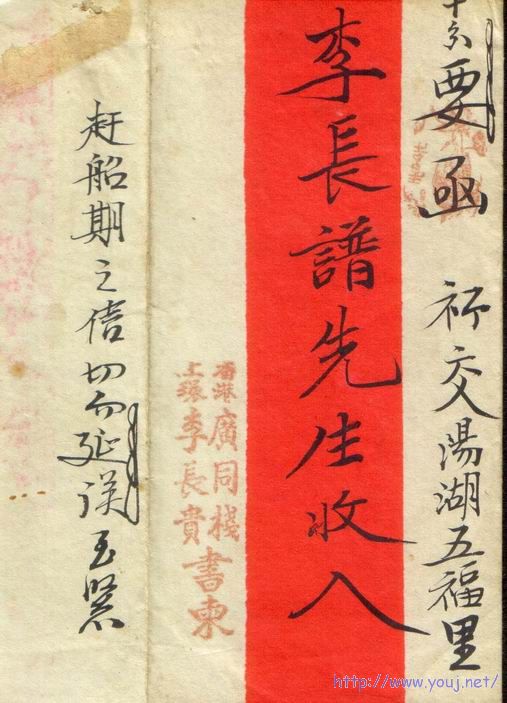 要函 祈交湯湖五福里
李長譜先生收入
香港廣同棧
上環李長貴
書柬
赶船期之信切勿延誤至緊
http://www.youj.net/